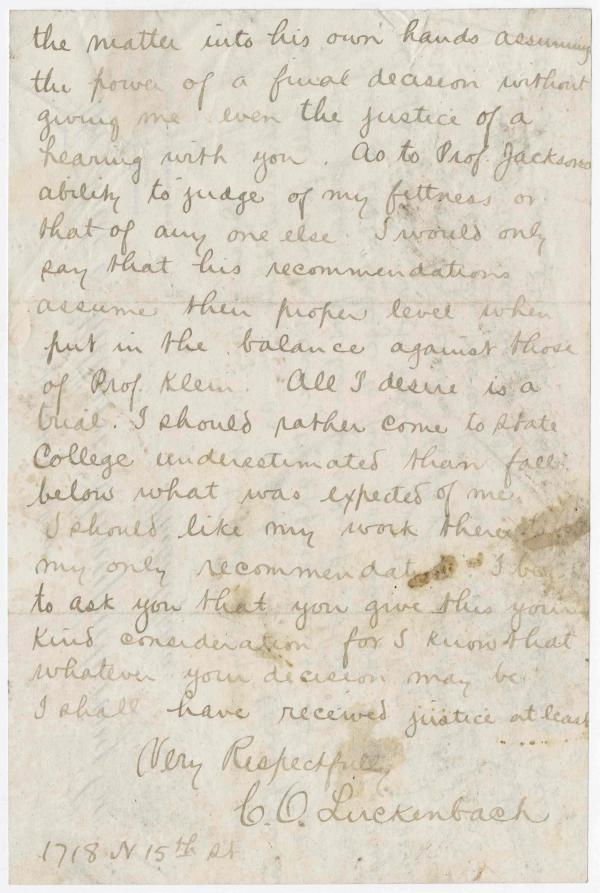 the matter into his own hands assuming
the power of a final decision without
giving me even the justice of a
hearing with you. As to Prof. Jacksons
ability to judge of my fittness or
that of any one else I would only
say that his recommendations
assume their proper level when
put in the balance against those
of Prof. Klein. All I desire is a
trial. I should rather come to State
College underestimated than fall
below what was expected of me.
I should like my work there
my only recommendation. I beg
to ask you that you give this your
kind consideration for I know that
whatever your decision may be
I shall have received justice at least
Very Respectfully
C. O. Luckenbach
1718 N 15th st